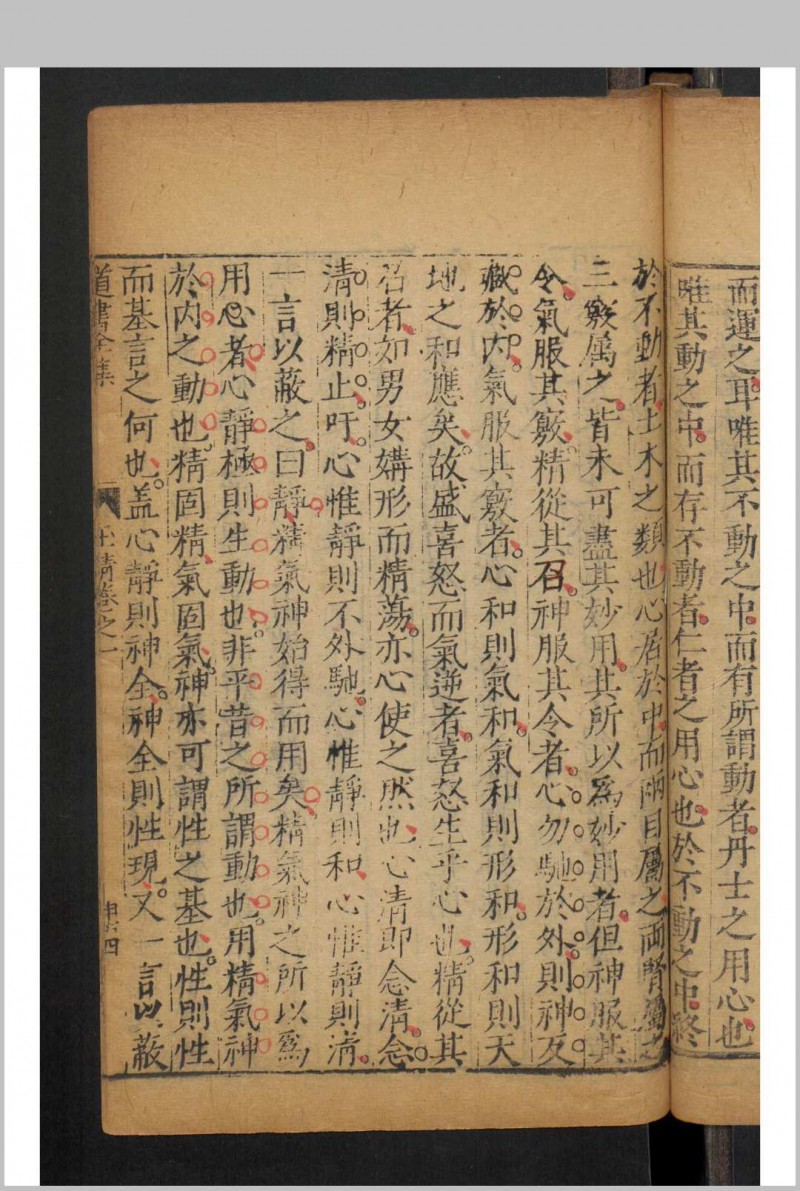 而運之耳唯其不動之中而有所謂動者丹士之用心也
唯其動之中而存不動者仁者之用心也於不動之中終
於不動者土木之類也心居於中而兩目屬之兩腎屬之
三竅屬之皆未可盡其妙用其所以爲妙用者但神服其
令氣服其竅精從其召神服其令者心勿馳於外則神反
藏於内氣服其竅者心和則氣和氣和則形和形和則天
地之和應矣故盛喜怒而氣逆者喜怒生乎心也精從其
召者如男女媾形而精蕩亦心使之然也心清即念清念
清則精止吁心惟靜則不外馳心惟靜則和心惟靜則清
一言以蔽之曰靜精氣神始得而用矣精氣神之所以爲
用者心靜極則生動也非平昔之所謂動也用精氣神
於内之動也精固精氣固氣神亦可謂性之基也性則性
而基言之何也盖心靜則神全神全則性現又一言以蔽
道書全集
上清卷之一
四